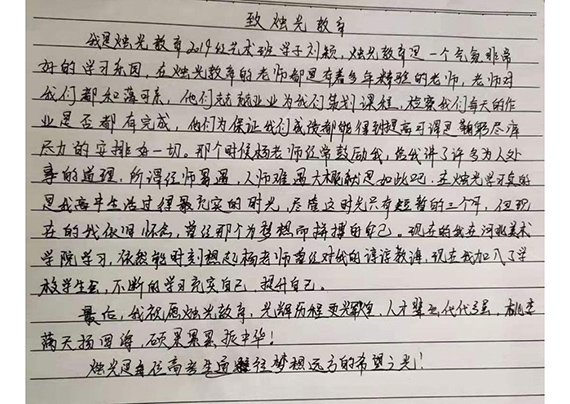 致烛光教育
我是烛光教育2019级艺术班学子刘颖,烛光教育是一个气氛非常
好的学习乐园,在烛光教育的老师都是有着多年经验的老师,老师对
我们都和蔼可亲,他们兢兢业业为我们策划课程,检察我们每天的作
业是否都有完成,他们为保证我们成绩都能得到提高可谓是鞠躬尽瘁
尽力的安排每一切。那个时候杨老师经常鼓励我,给我讲了许多为人处
事的道理,所谓经师易遇,人师难遇大概就是如此吧。在烛光学习的
是我高中生活过得最充实的时光,尽管这时光只有短暂的三个年,但现
在的我依旧怀念,曾经那个为梦想而拼搏的自己。现在的我在河北美术
学院学习,依然能时刻想起杨老师曾经对我的谆谆教诲,现在我加入了学
校学生会,不断的学习充实自己,提升自己。
最后,我祝愿烛光教育,光辉历程更辉煌,人才辈出代代强,桃李
满天扬四海,硕果累累振中华!
烛光是每位高考生通往梦想远方的希望之光!